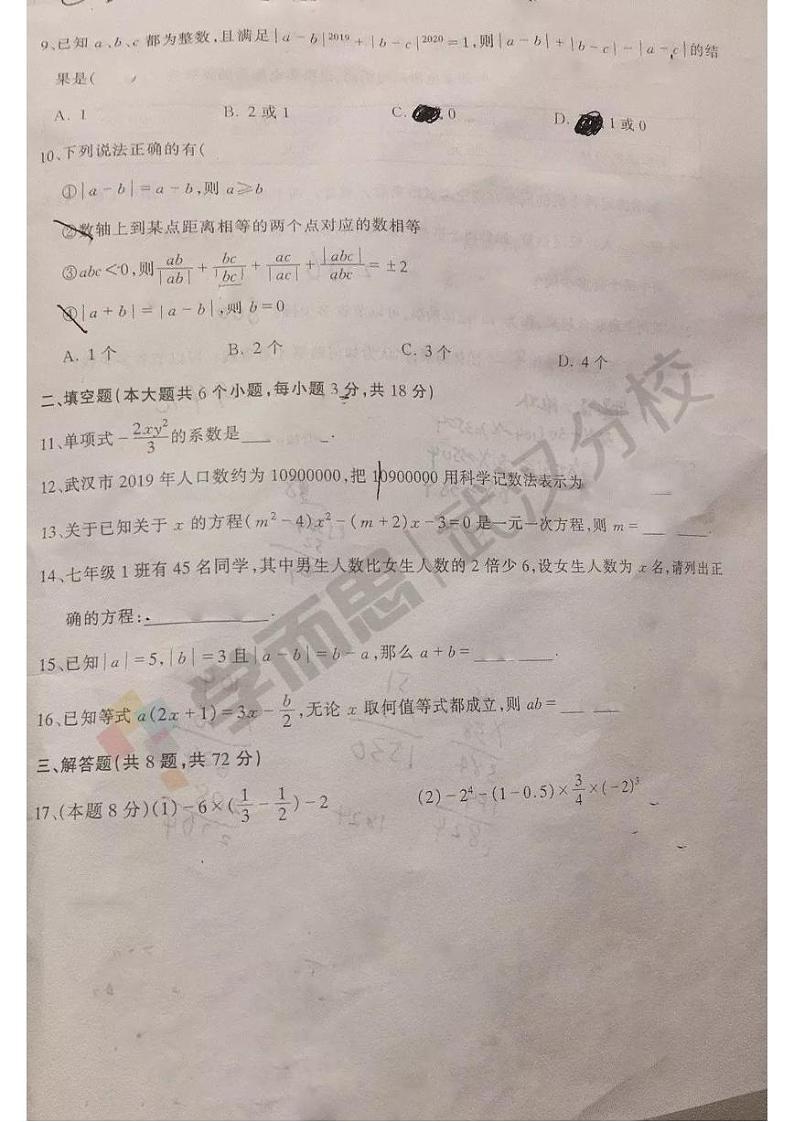 9、已知 a、b、c 都为整数,且满足|a-b|²⁰¹⁹+|b-c|²⁰²⁰=1,则|a-b|+|b-c|-|a-c|的结
果是(
A. 1 B. 2 或 1 C. 0 D. 1 或 0
10、下列说法正确的有(
①|a-b|=a-b,则 a≥b
②数轴上到某点距离相等的两个点对应的数相等
③abc<0,则ab/|ab|+bc/|bc|+ac/|ac|+|abc|/abc=±2
④|a+b|=|a-b|,则 b=0
A. 1 个 B. 2 个 C. 3 个 D. 4 个
二、填空题(本大题共 6 个小题,每小题 3 分,共 18 分)
11、单项式-2xy²/3的系数是____.
12、武汉市 2019 年人口数约为 10900000,把 10900000 用科学记数法表示为____
13、关于已知关于 x 的方程(m²-4)x²-(m+2)x-3=0 是一元一次方程,则 m=____.
14、七年级 1 班有 45 名同学,其中男生人数比女生人数的 2 倍少 6,设女生人数为 x 名,请列出正
确的方程:____.
15、已知|a|=5,|b|=3 且|a-b|=b-a,那么 a+b=____.
16、已知等式 a(2x+1)=3x-b/2,无论 x 取何值等式都成立,则 ab=____
三、解答题(共 8 题,共 72 分)
17、(本题 8 分)(1)-6×(1/3-1/2)-2 (2)-2⁴-(1-0.5)×3/4×(-2)³
学而思|武汉分校